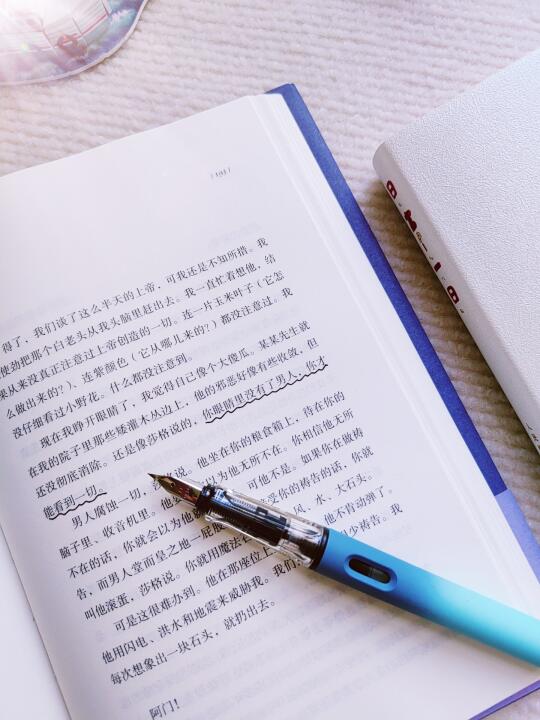 [ 191 ]
得了，我们谈了这么半天的上帝，可我还是不知所措。我
使劲把那个白老头从我头脑里赶出去。我一直忙着想他，结
果从来没真正注意过上帝创造的一切。连一片玉米叶子（它怎
么做出来的？）、连紫颜色（它从哪儿来的？）都没注意过。我
没仔细看过小野花。什么都没注意到。
现在我睁开眼睛了，我觉得自己像个大傻瓜。某某先生就
在我的院子里那些矮灌木丛边上，他的邪恶好像有些收敛，但
还没彻底消除。还是像莎格说的，你眼睛里没有了男人，你才
能看到一切。
男人腐蚀一切，格说。他坐在你的粮食箱上，待在你的
脑子里、收音机里。他要为他无所不在。你相信他无所
不在的话，你就会以为他就可他不是。如果你在做祷
告，而男人堂而皇之地一屁股受你的祷告的话，你就
叫他滚蛋，莎格说。你就用魔法风、水、大石头。
可是这很难办到。他在那座位上他不肯动弹了。
他用闪电、洪水和地震来威胁我。我们少祷告。我
每次想象出一块石头，就扔出去。
阿门！